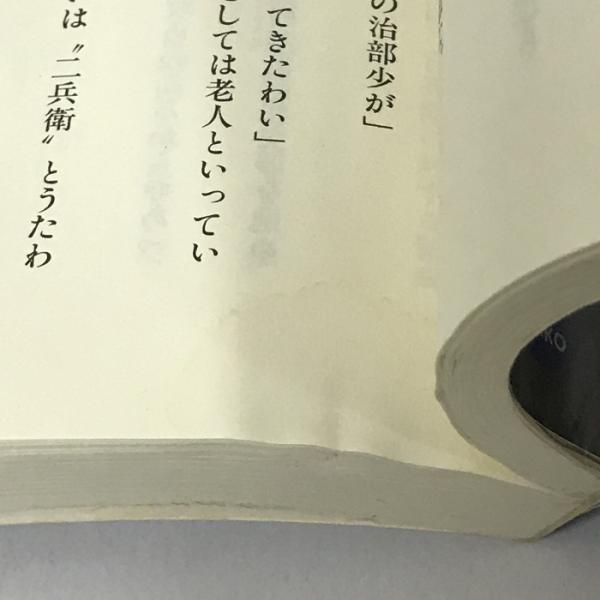 の治部少が」
てきたわい」
しては老人といってい
は〝二兵衛〟とうたわ
KO